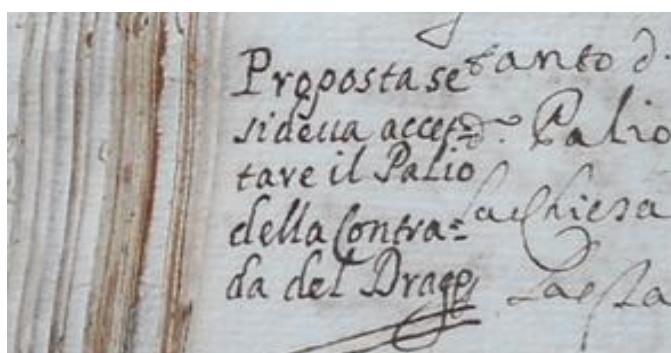 Proposta se
si deua accet=
tare il Palio
della Contra=
da del Drago
tanto d.
Palio
la Chiesa